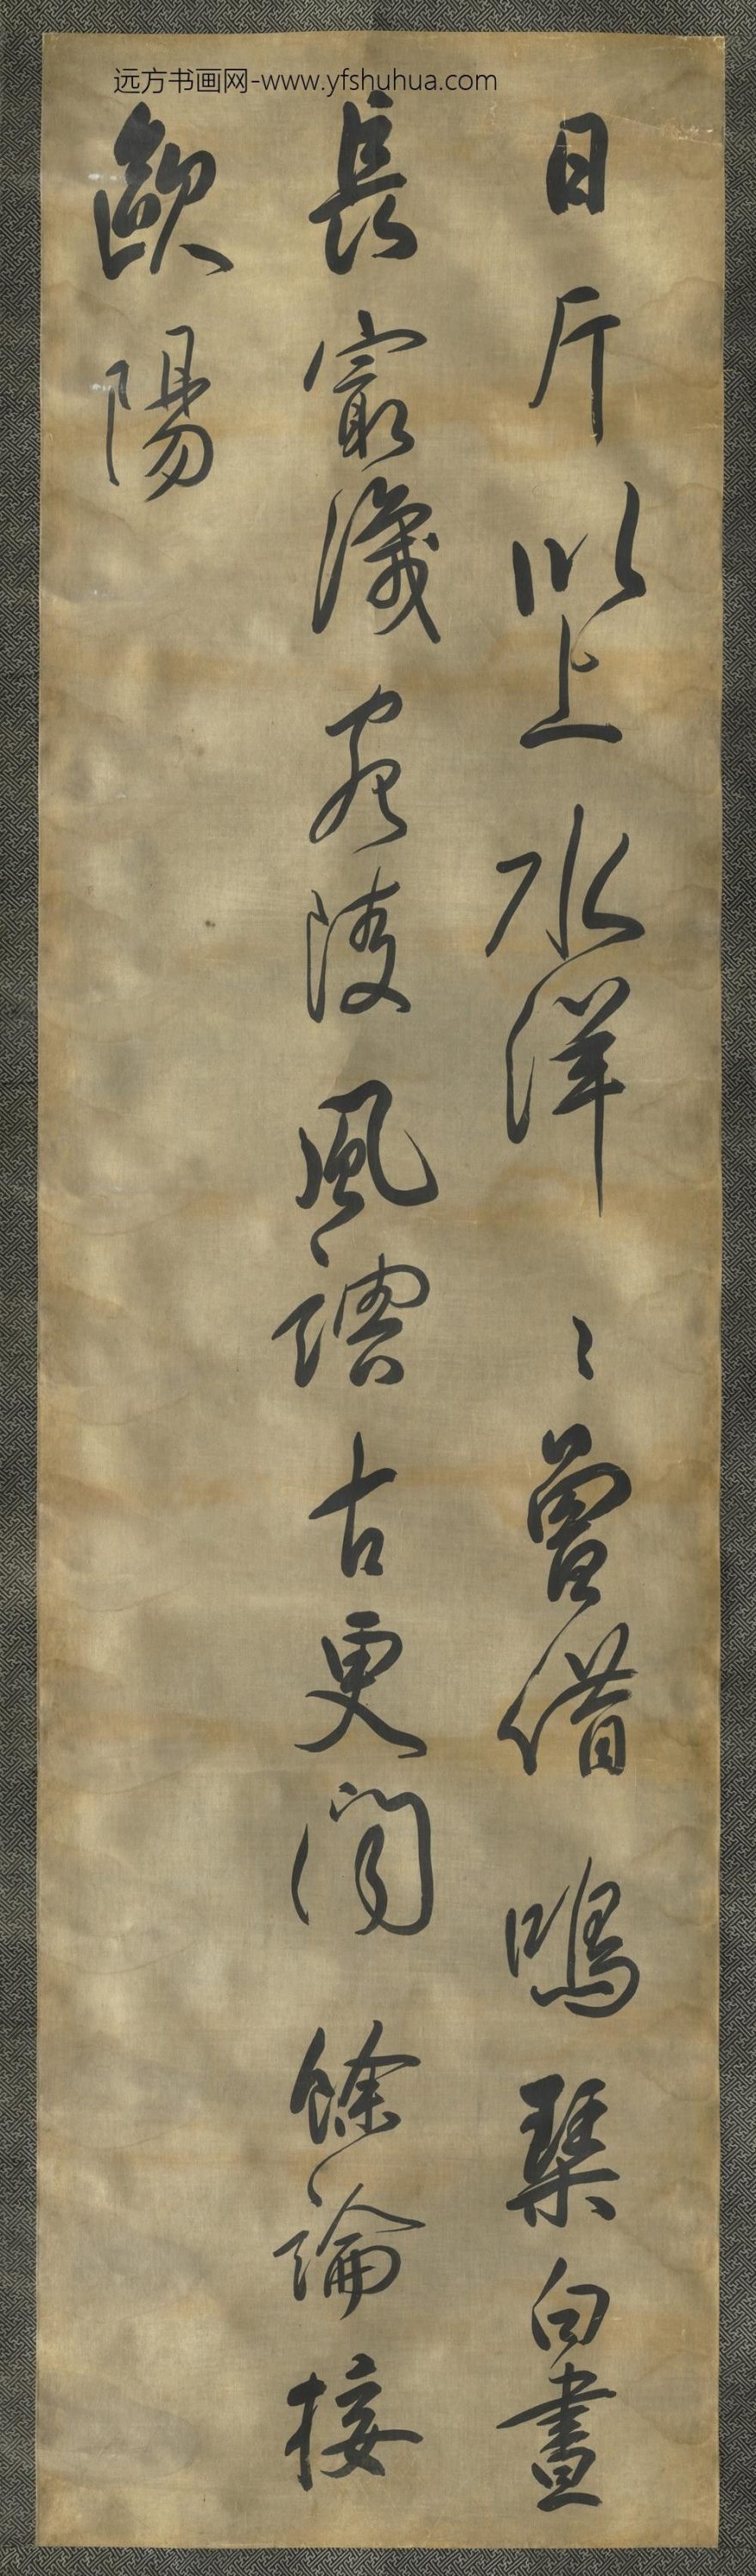 远方书画网-www.yfshuhua.com
日斤以上水洋〻曾借鳴琴白晝
長最識宛陵風調古更闻餘論接
歐陽